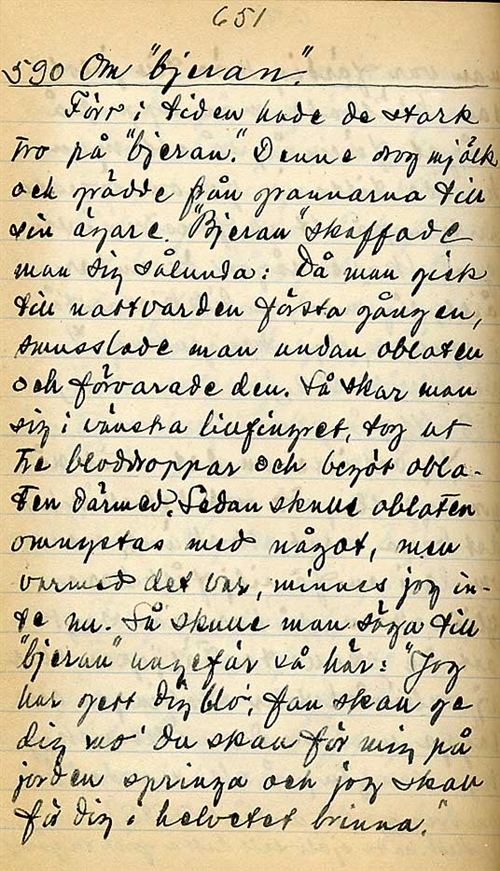 651
590 Om "bjeran".
Förr i tiden hade de stark
tro på "bjeran." Denne drog mjölk
och grädde från grannarna till
sin ägare. "Bjeran" skaffade
man sig sålunda: Då man gick
till nattvarden första gången,
smusslade man undan oblaten
och förvarade den. Så skar man
sig i vänstra lillfingret, tog ut
tre bloddroppar och begöt obla-
ten därmed. Sedan skulle oblaten
omnystas med något, men
varmed det var, minnes jag in-
te nu. Så skulle man säga till
"bjeran" ungefär så här: "Jag
har gett dig blo', fan skall ge
dig mo' du skall för mig på
jorden springa och jag skall
för dig i helvetet brinna."